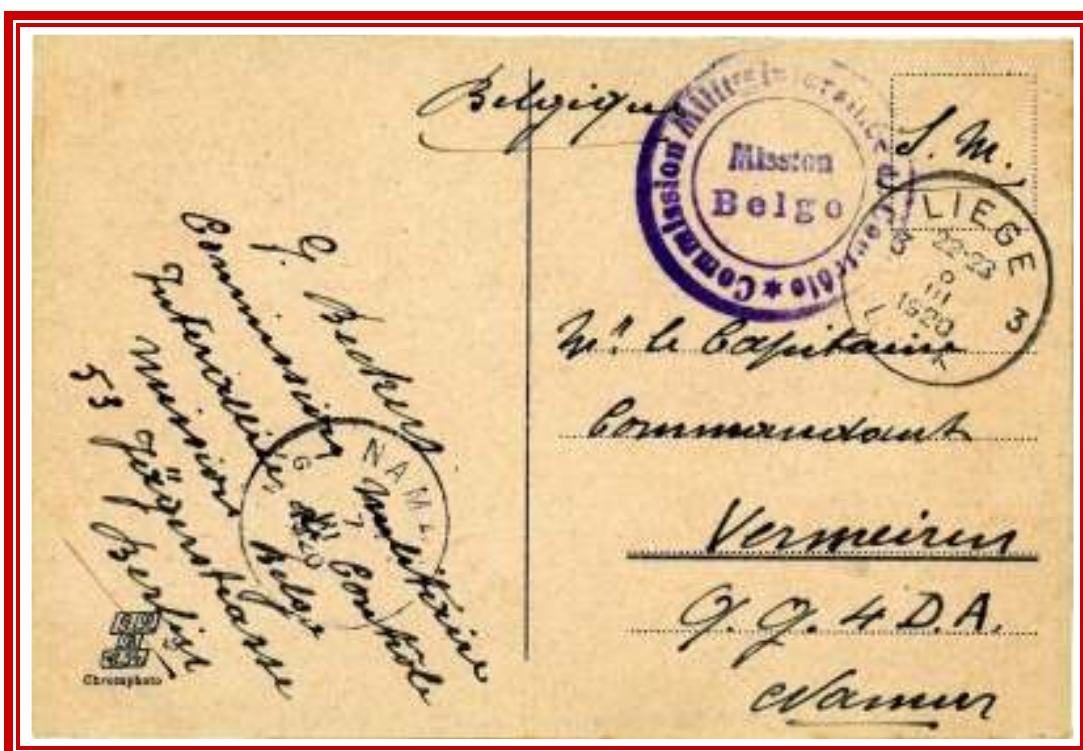 Belgique
S. M.
Commission Militre Interalliée de Contrôle *
Mission
Belge
LIEGE
3 3
22-23
III
1920
Mr le Capitaine
Commandant
Vermeiren
4 D.A.
Namur
G. Beckers
Commission Militaire
Interalliée de Contrôle
Mission Belge
53 Jägerstrasse
Berlin
NAM
7
III
1920
Chromphoto